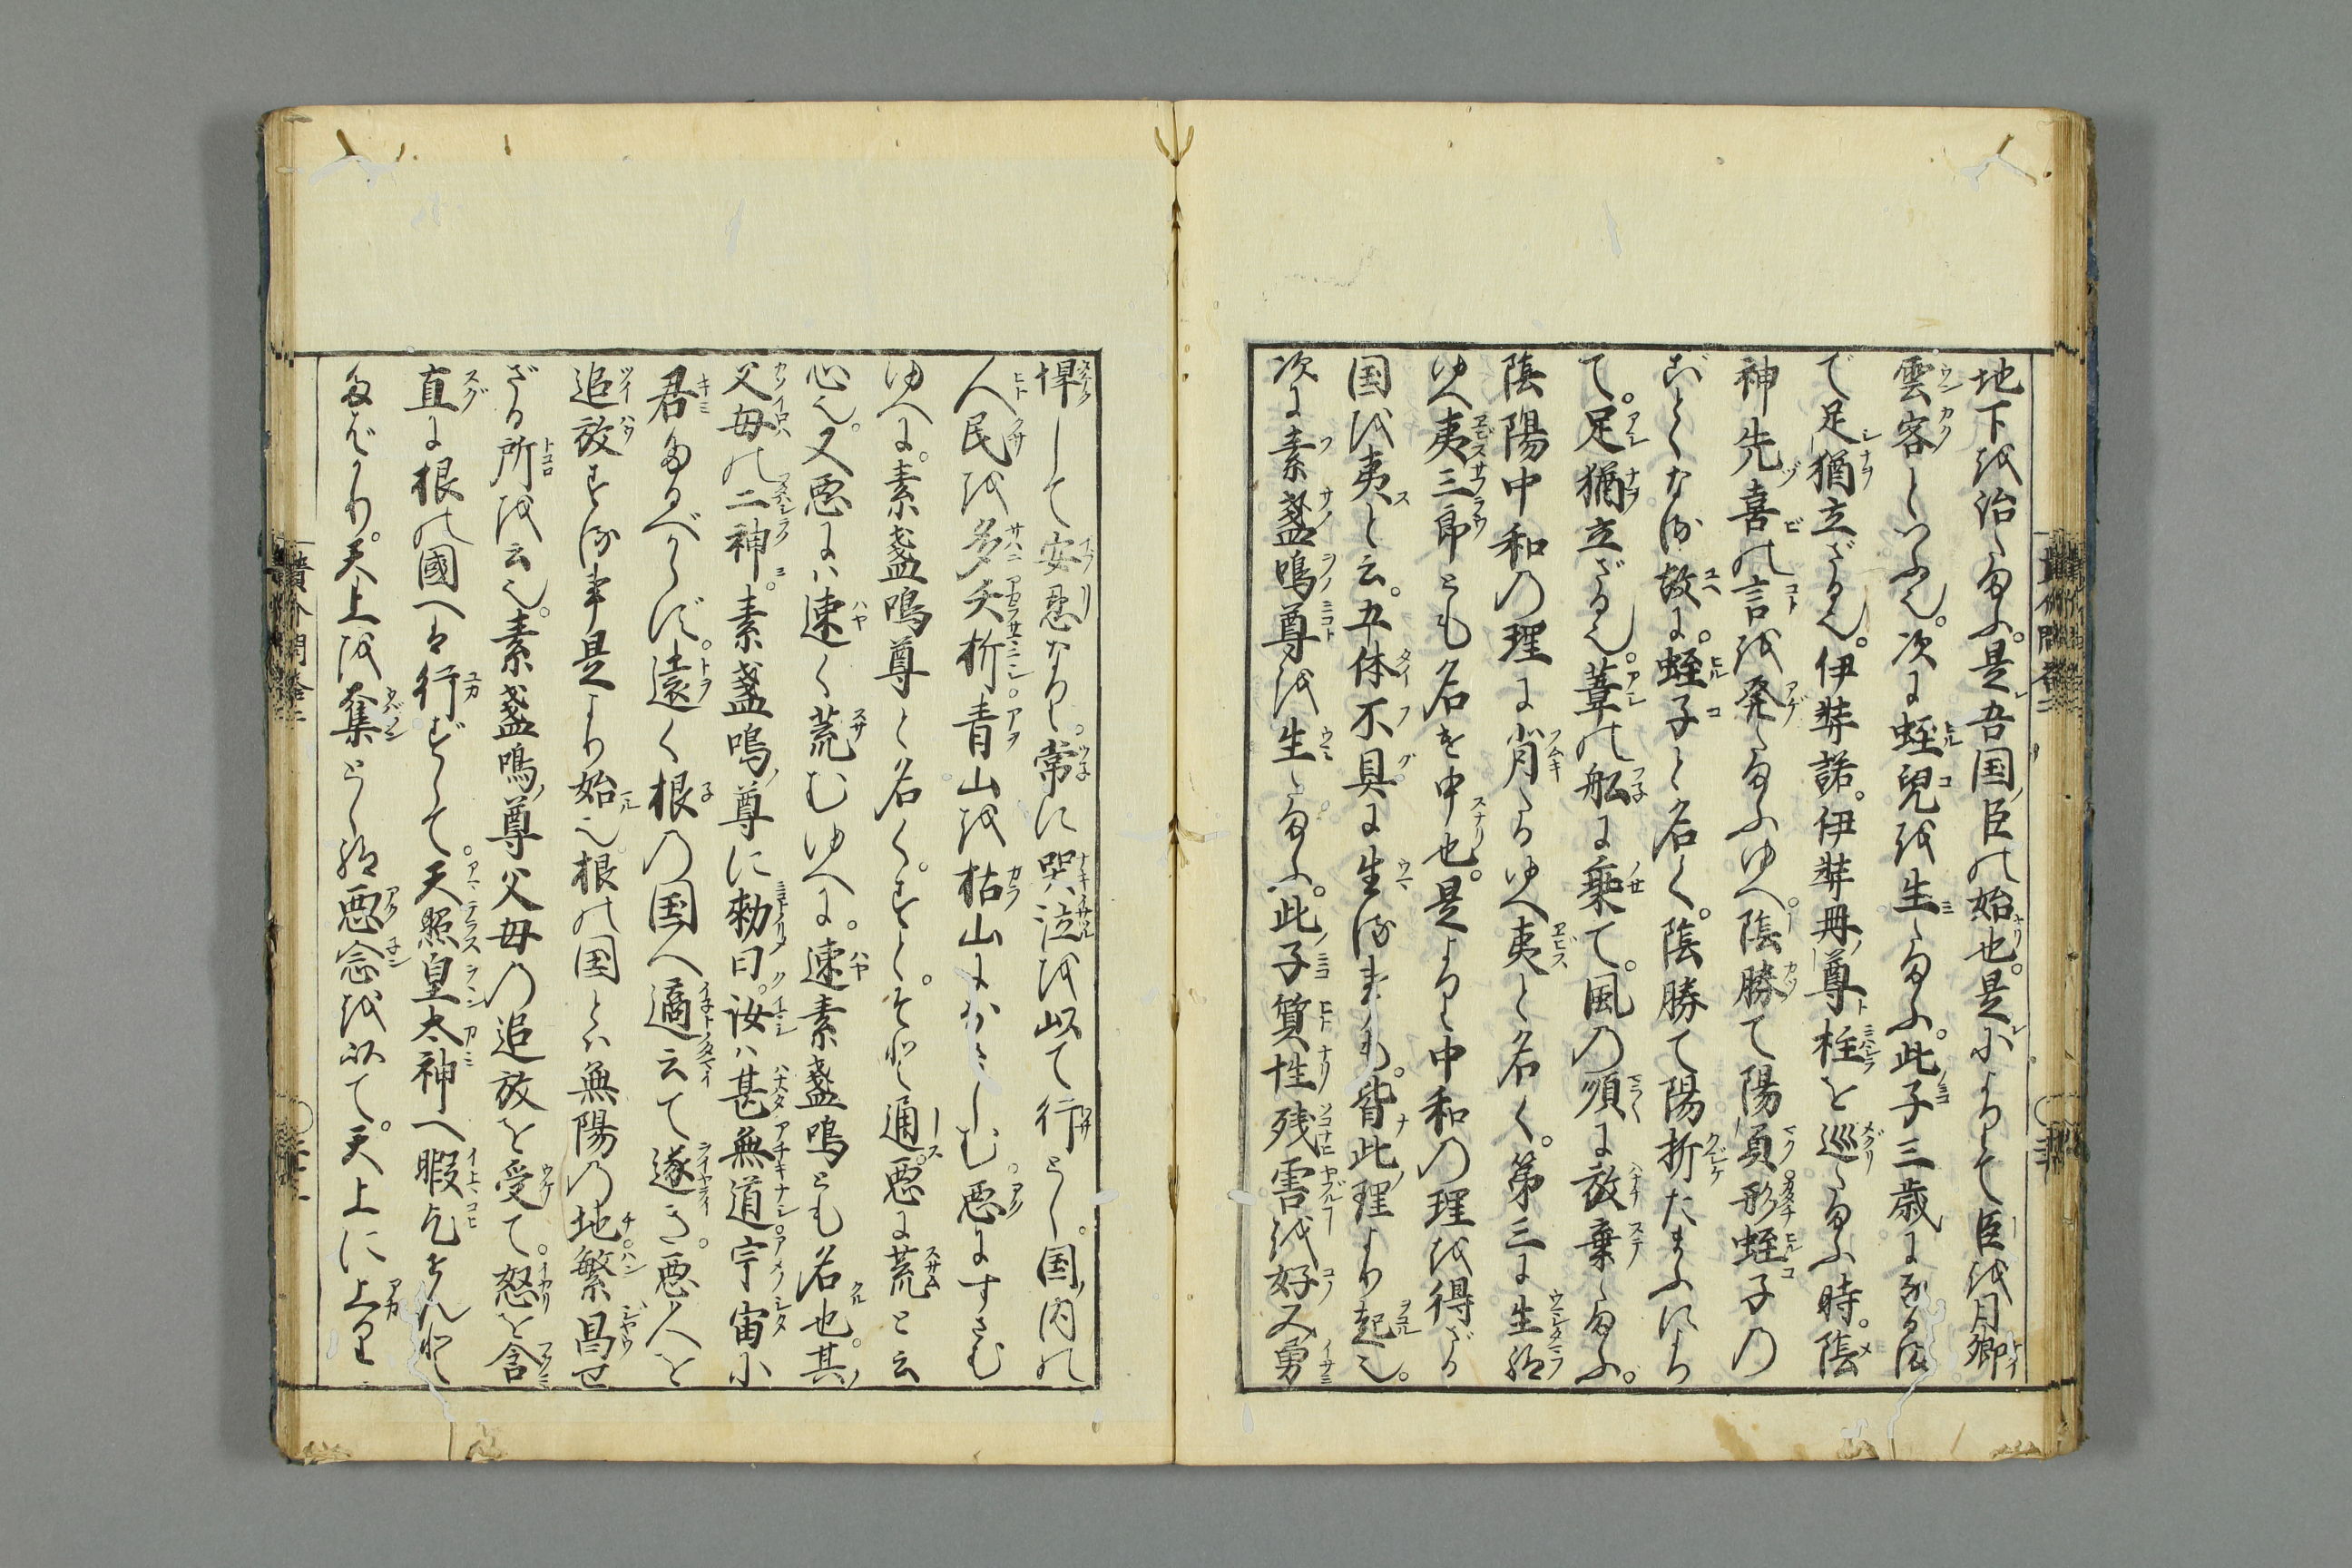 地下を治給ふ。是吾国臣の始也。是によりて臣を月卿
雲客といふ也。次に蛭兒を生給ふ。此子三歳になるま
で足猶立ざる也。伊弉諾。伊弉冊尊柱を巡給ふ時。陰
神先喜の言を発給ふゆへ。陰勝て陽負形蛭子の
ごとくなる故に。蛭子と名く。陰勝て陽折たまふにより
て。足猶立ざる也。葦の舩に乗て。風の順に放棄給ふ。
陰陽中和の理に背たるゆへ夷と名く。第三に生給
ゆへ夷三郎とも名を申也。是よりして中和の理を得ざる
国を夷と云。五体不具に生るまでも。皆此理より起也。
次に素盞嗚尊を生給ふ。此子質性残害を好又勇
悍して安忍なり。常に哭泣を以て行とし。国内の
人民を多夭折青山を枯山になさしむ。悪にすさむ
ゆへに。素盞嗚尊と名く。すとく。それ通悪に荒と云
心也。又悪には速く荒むゆへに。速素盞嗚とも名也。其
父母の二神。素盞嗚尊に勅曰。汝は甚無道宇宙に
君たるべからず。遠く根の国へ適云て遂き。悪人を
追放する事是より始也根の国とは無陽の地繁昌せ
ざる所を云也。素盞嗚尊父母の追放を受て。怒を含
直に根の國へは行ずして。天照皇太神へ暇乞せんと
たばかり。天上を奪とし給悪念を以て。天上に上り